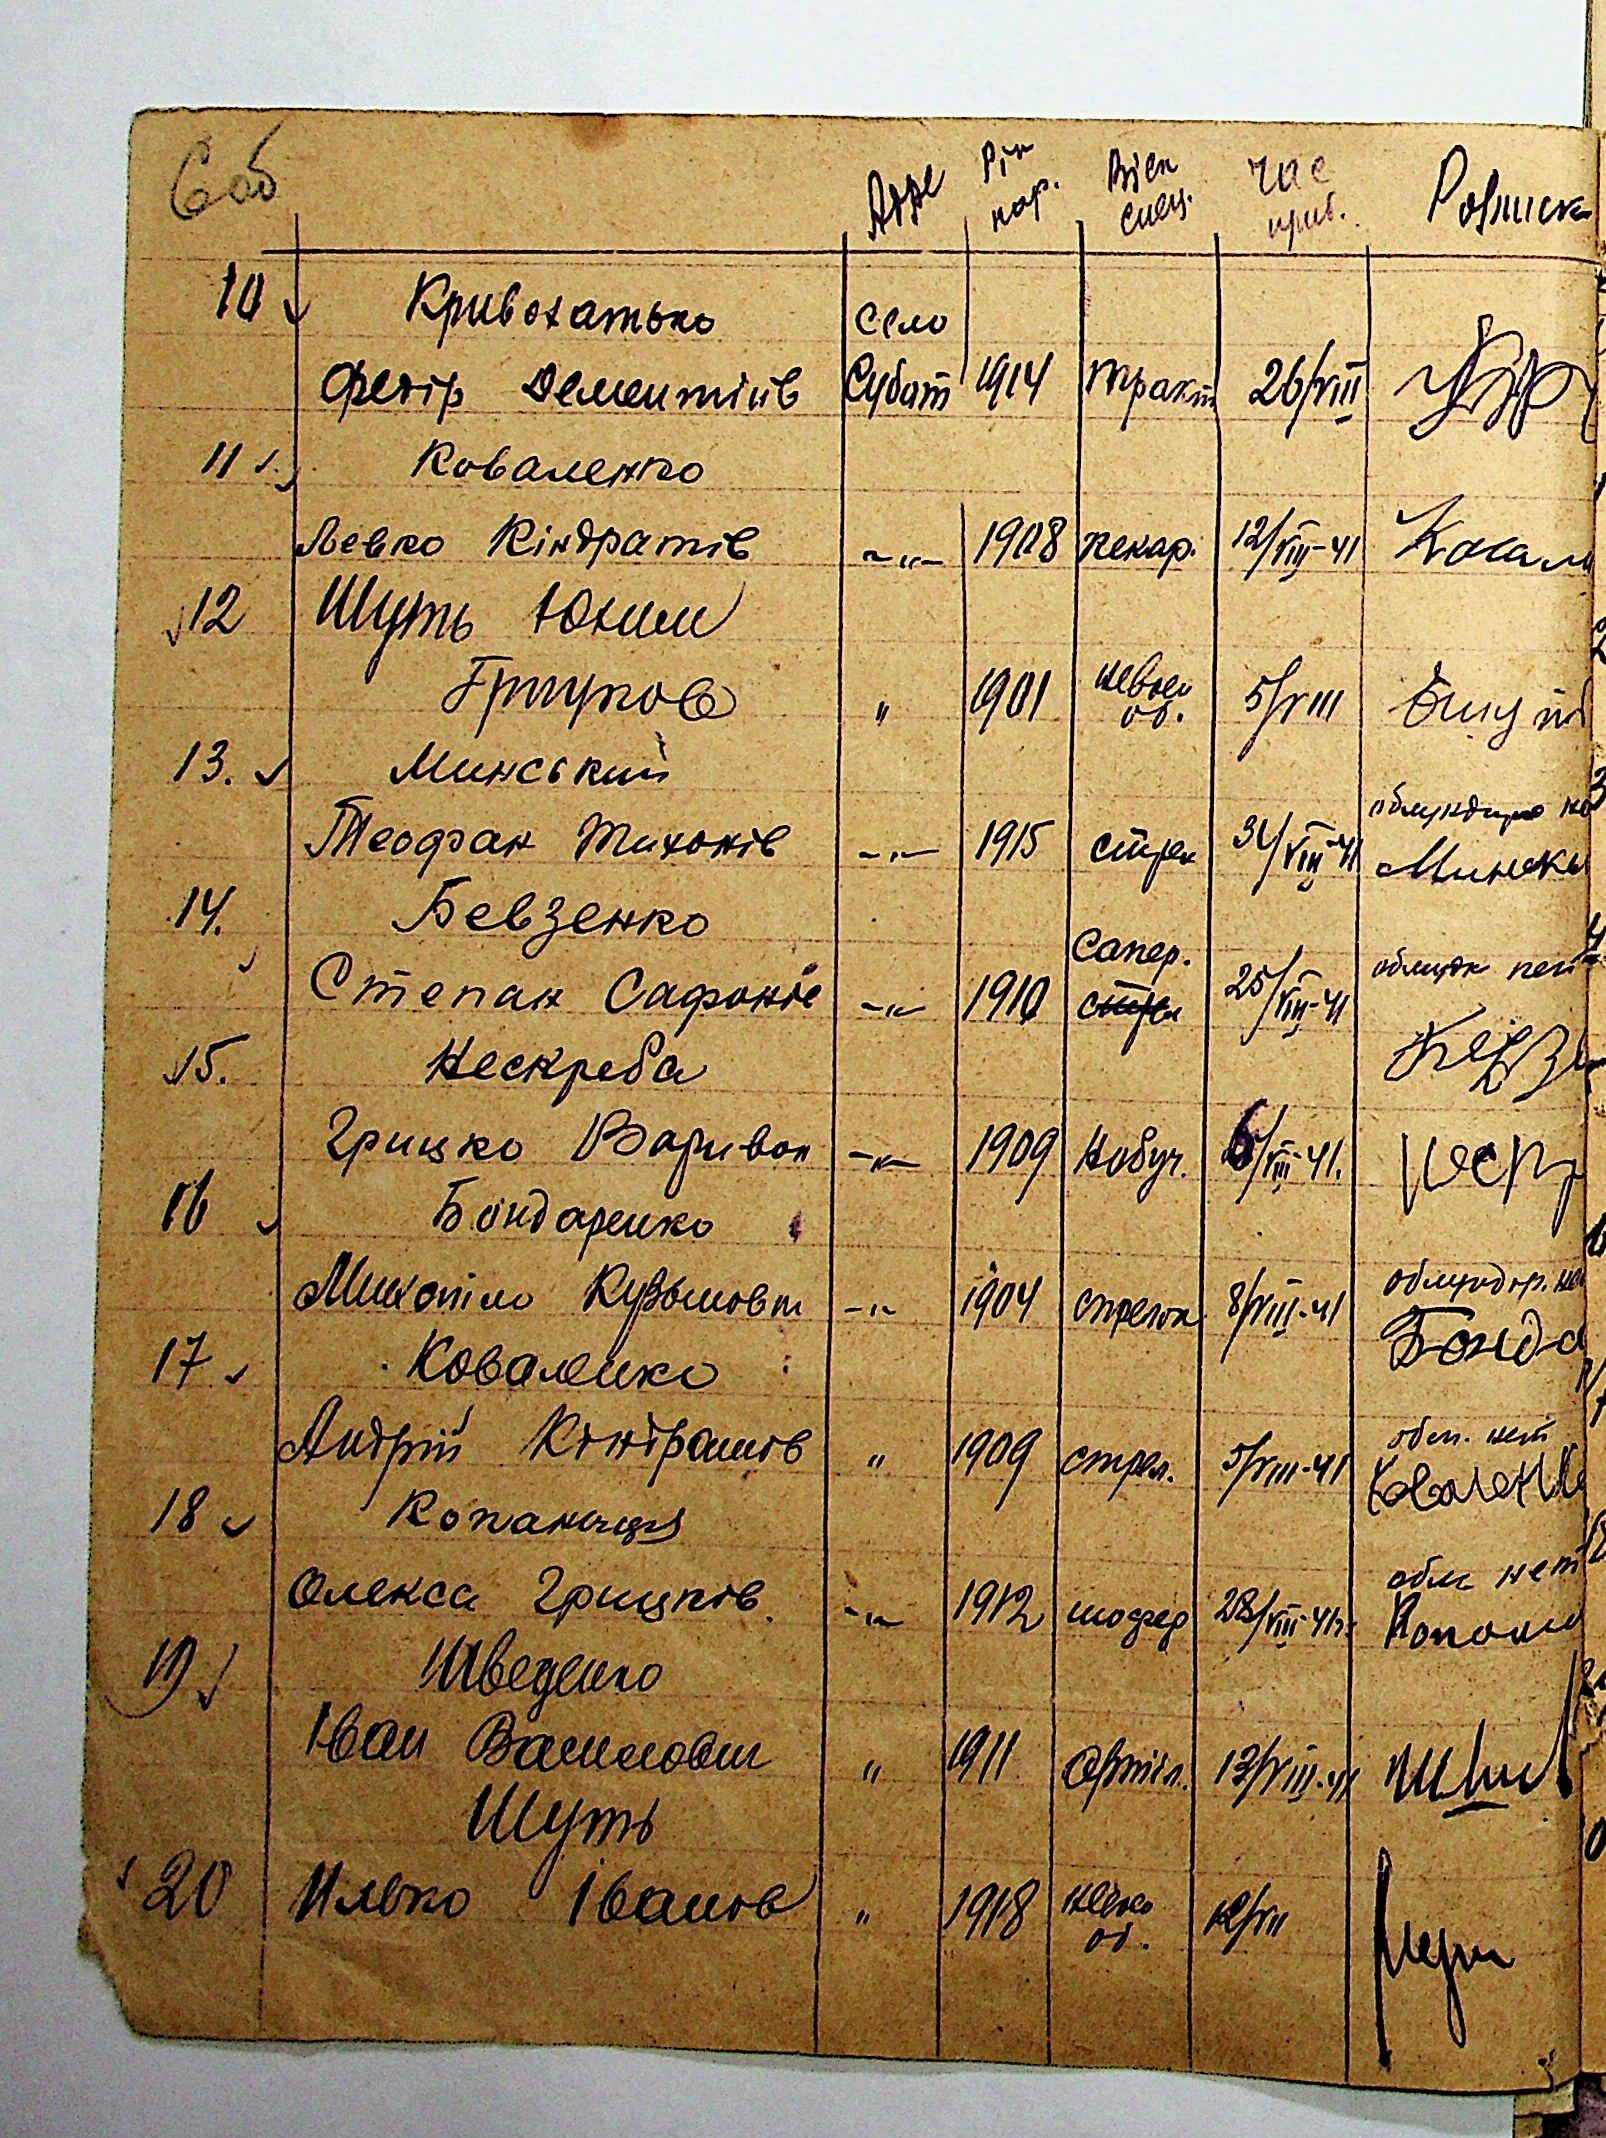 Адре Рік нар. Військ спец. Час приб. Розписк
10 Кривохатько село
Федір Дементіїв Субот 1914 тракт 26/VIII
11 Коваленко
Левко Кіндратів -"- 1908 пекар. 12/VIII-41 Ковал
12 Шуть Юхим
Грицков " 1901 невоен об. 5/VIII
13. Минський
Теофан Тихонів -"- 1915 стрел 31/VIII-41 Минськ
14. Бевзенко
Степан Сафонів -"- 1910 сапер. 25/VIII-41
15. Нескреба
Грицко Варивон -"- 1909 необуч. 6/VIII-41. Неск
16 Бондаренко
Михайло Кузьмович -"- 1904 стрелок 8/VIII-41 Бонда
17 Коваленко
Андрій Кіндратов " 1909 стрел. 5/VIII-41 обм. нет Коваленк
18 Копаниця
Олекса Грицків. -"- 1912 шофер 28/VIII-41 обм нет Копани
19 Шведенко
Іван Васильович " 1911 артіл. 13/VIII-41
Шуть
20 Илько Іванов " 1918 12/VII